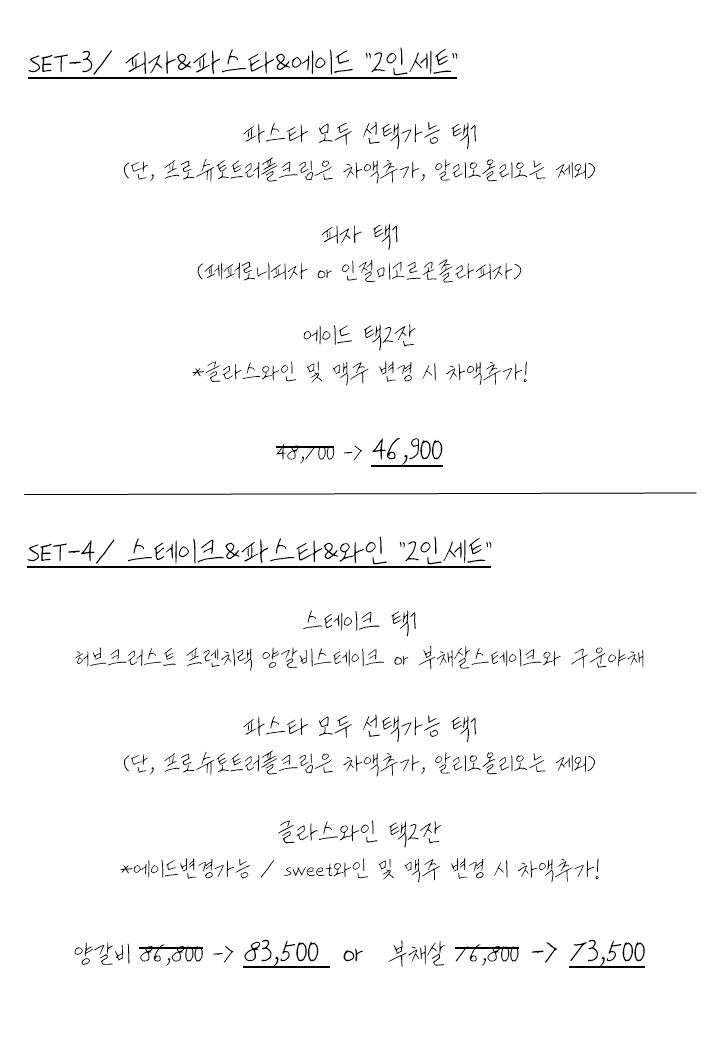 SET-3/ 피자&파스타&에이드 "2인세트"
파스타 모두 선택가능 택1
(단, 프로슈토트러플크림은 차액추가, 알리오올리오는 제외)
피자 택1
(페퍼로니피자 or 인절미고르곤졸라피자)
에이드 택2잔
*글라스와인 및 맥주 변경 시 차액추가!
48,700 -> 46,900
SET-4/ 스테이크&파스타&와인 "2인세트"
스테이크 택1
허브크러스트 프렌치랙 양갈비스테이크 or 부채살스테이크와 구운야채
파스타 모두 선택가능 택1
(단, 프로슈토트러플크림은 차액추가, 알리오올리오는 제외)
글라스와인 택2잔
*에이드변경가능 / sweet와인 및 맥주 변경 시 차액추가!
양갈비 86,800 -> 83,500 or 부채살 76,800 -> 73,500